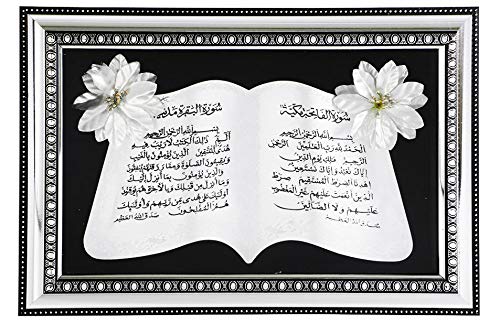 سورة الفاتحة مكية
بسم الله الرحمن الرحيم
الحمد لله رب العلمين الرحمن
الرحيم ملك يوم الدين
إياك نعبد وإياك نستعين
اهدنا الصرط المستقيم صرط
الذين أنعمت عليهم غير المغضوب
عليهم ولا الضالين
سورة البقرة مدنية
بسم الله الرحمن الرحيم
الم ذلك الكتب لا ريب فيه
هدى للمتقين الذين يؤمنون بالغيب
ويقيمون الصلوة ومما رزقنهم ينفقون
والذين يؤمنون بما أنزل إليك
وما أنزل من قبلك وبالآخرة هم يوقنون
أولئك على هدى من ربهم وأولئك
هم المفلحون صدق الله العظيم